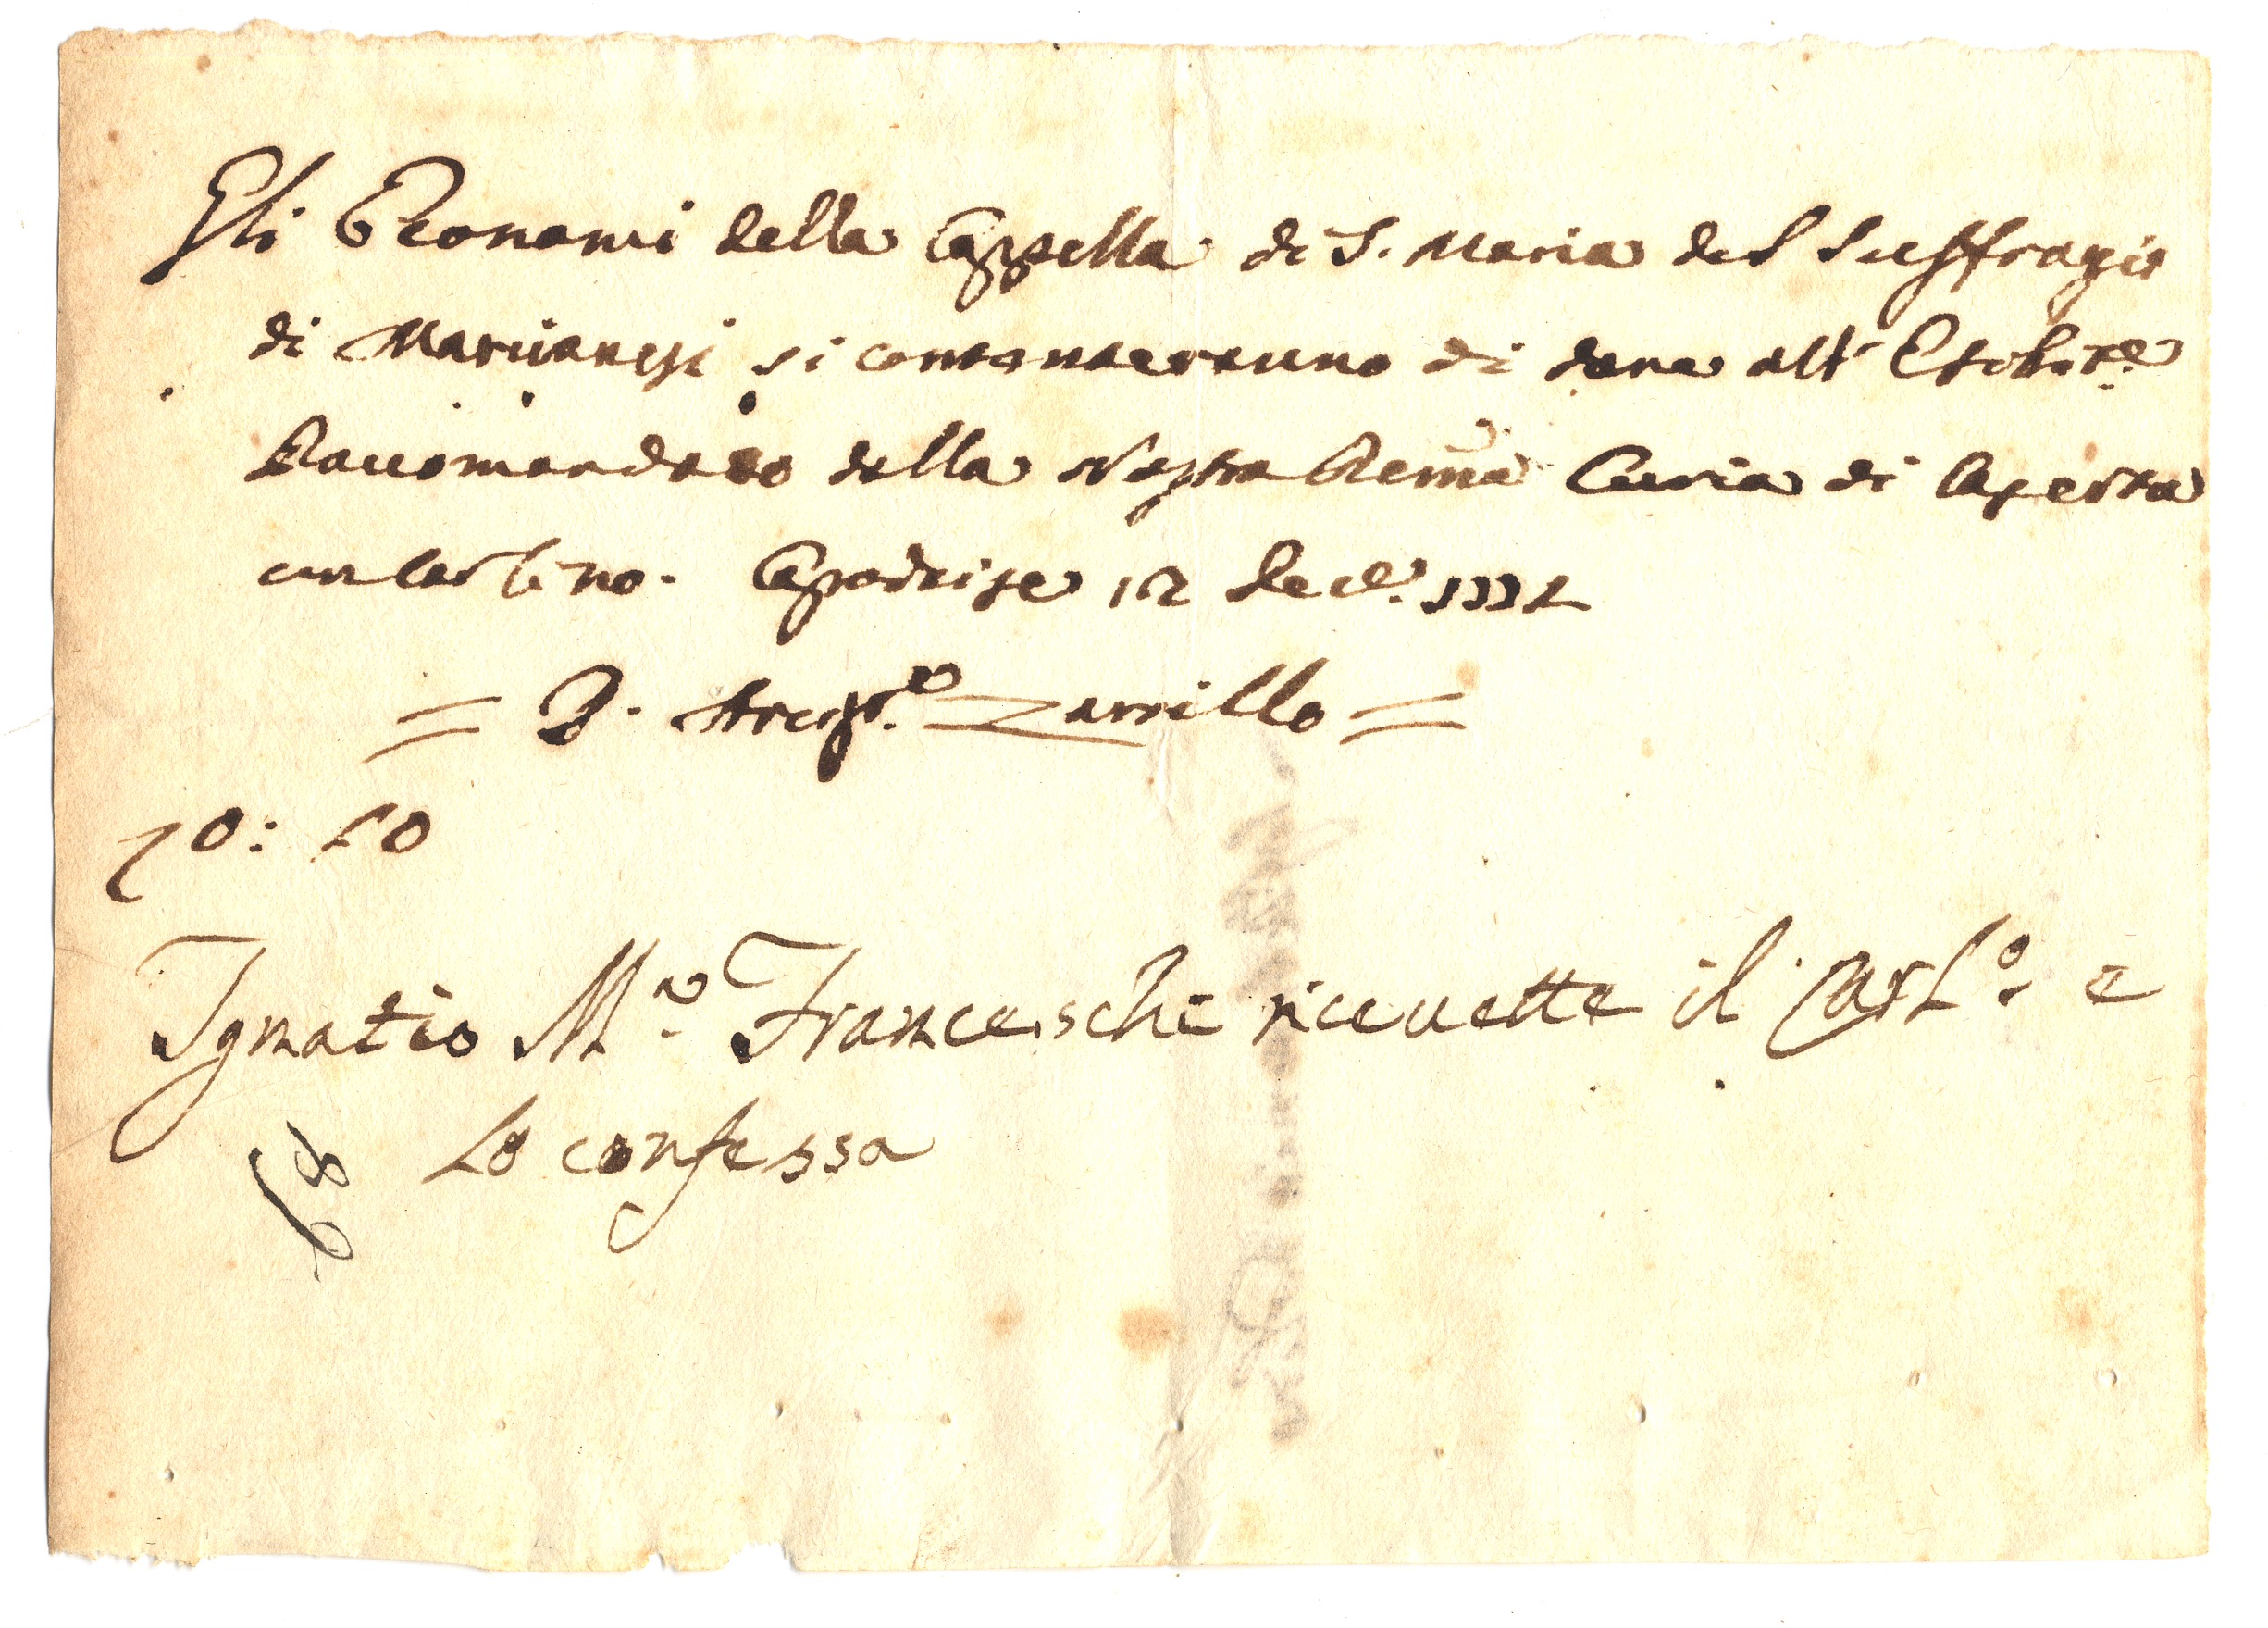 Gli Economi della Cappella di S. Maria del Suffragio
di Marcianesi si contenteranno di dare all' Esibit.e
Raccomandato dalla Nostra Rema Curia di Aversa
un Carlino. Capodrise 12 Dec.e 1772
= D. Arcip.e Zarrillo =
0: 10
Ignatio M.a Franceschi ricevette il Carl.o e
Lo confessa